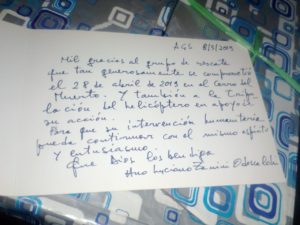 AGS 8/5/2019
Mil gracias al grupo de rescate
que tan generosamente se comprometió
el 28 de abril de 2019 en el Cerro del
Muerto. Y también a la Tripu
lación del helicóptero en apoyo a
su acción.
Para que su intervención humanitaria
pueda continuar con el mismo espíritu
y entusiasmo.
Que Dios los bendiga
Hno Luciano